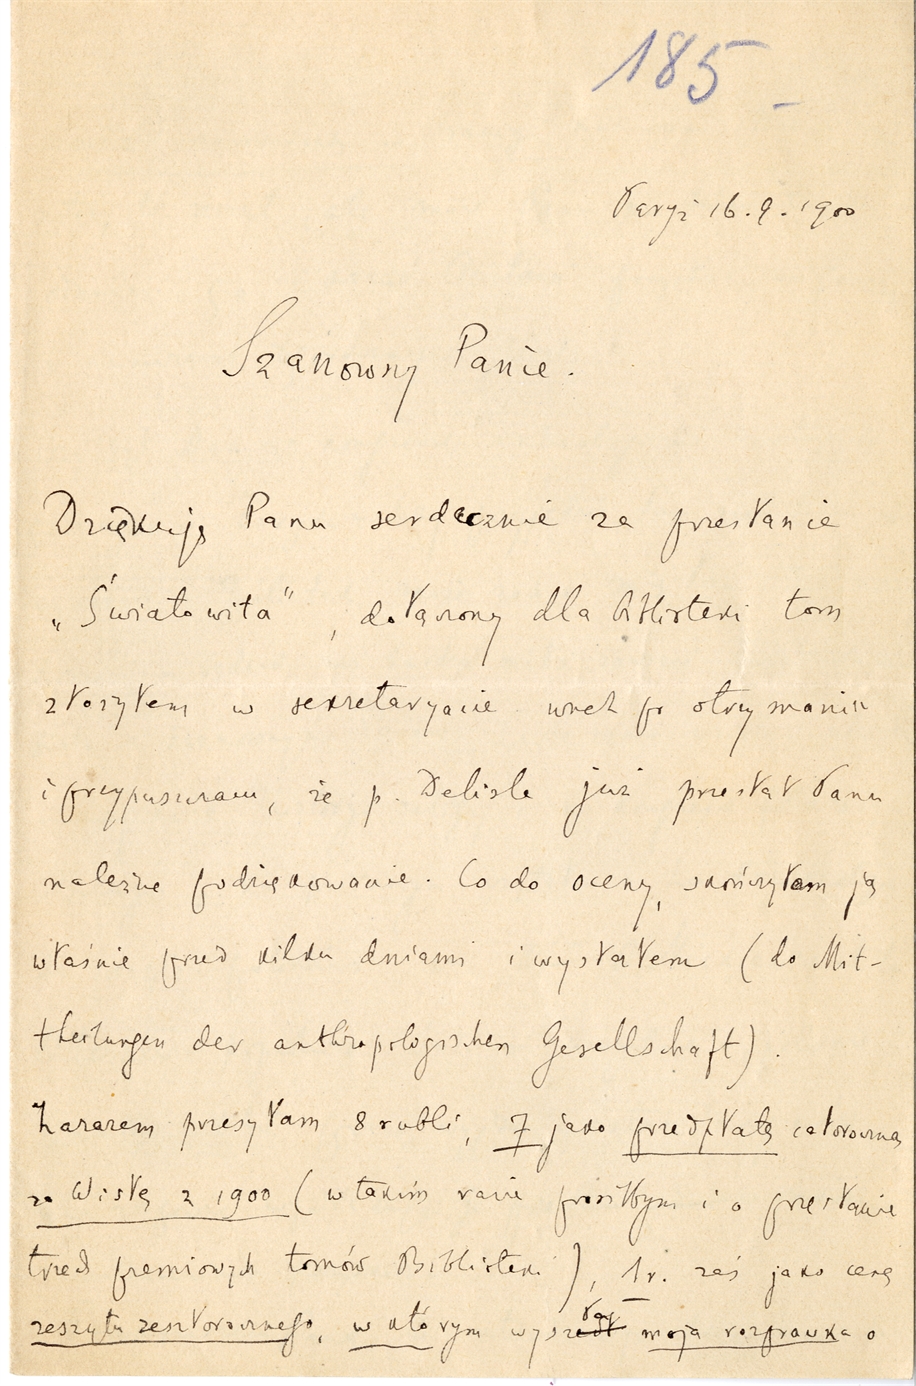 185 -
Paryż 16.9.1900
Szanowny Panie.
Dziękuję Panu serdecznie za przesłanie
„Światowita", dołączony dla biblioteki tom
złożyłem w sekretaryacie wnet po otrzymaniu
i przypuszczam, że p. Delisle już przesłał Panu
należne podziękowanie. Co do oceny, skończyłem ją
właśnie przed kilku dniami i wysłałem (do Mit-
theilungen der anthropologischen Gesellschaft).
Zarazem przesyłam 8 rubli, 7 jako przedpłatę całoroczną
za Wisłę z 1900 (w takim razie prosiłbym i o przesłanie
trzech premiowych tomów Biblioteki), 1 r. zaś jako cenę
zeszytu zeszłorocznego, w którym wyszła moja rozprawka o